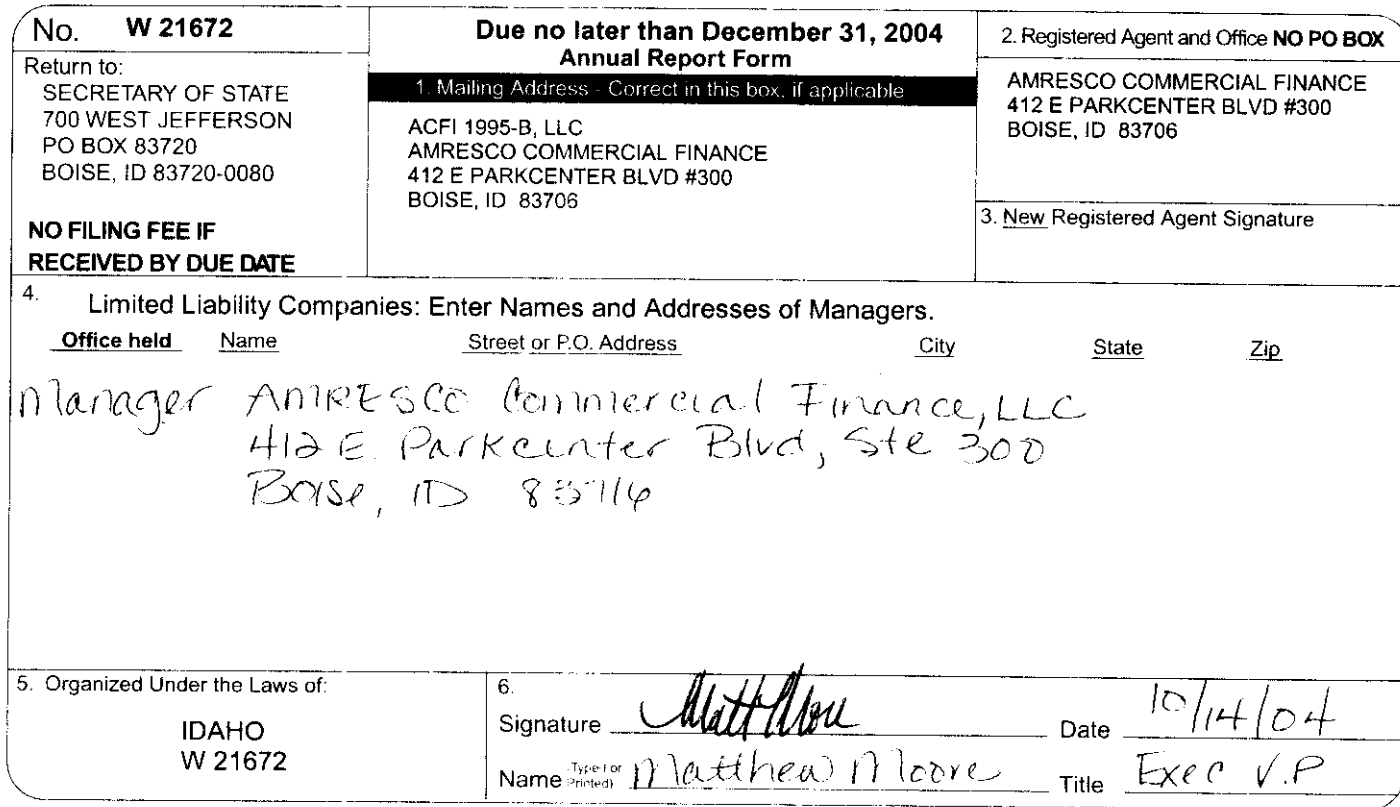 No. W 21672
Return to:
SECRETARY OF STATE
700 WEST JEFFERSON
PO BOX 83720
BOISE, ID 83720-0080
NO FILING FEE IF
RECEIVED BY DUE DATE
Due no later than December 31, 2004
Annual Report Form
1. Mailing Address - Correct in this box, if applicable
ACFI 1995-B, LLC
AMRESCO COMMERCIAL FINANCE
412 E PARKCENTER BLVD #300
BOISE, ID 83706
2. Registered Agent and Office NO PO BOX
AMRESCO COMMERCIAL FINANCE
412 E PARKCENTER BLVD #300
BOISE, ID 83706
3. New Registered Agent Signature
4. Limited Liability Companies: Enter Names and Addresses of Managers.
Office held Name Street or P.O. Address City State Zip
Manager AMRESCO Commercial Finance, LLC
412 E. Parkcenter Blvd, Ste 300
Boise, ID
5. Organized Under the Laws of:
IDAHO
W 21672
6.
Signature Matt Moore Date 10/14/04
Name (Type or Printed) Matthew Moore Title Exec V.P